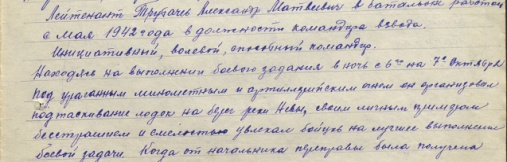 Лейтенант Трубачев Александр Матвеевич в батальоне работает
с мая 1942 года в должности командира взвода.
Инициативный, волевой, способный командир.
Находясь на выполнении боевого задания в ночь с 6го на 7е октября
под ураганным минометным и артиллерийским огнем он организовал
подтаскивание лодок на берег реки Невы, своим личным примером
бесстрашием и смелостью увлекал бойцов на лучшее выполнение
боевой задачи. Когда от начальника переправы была получена